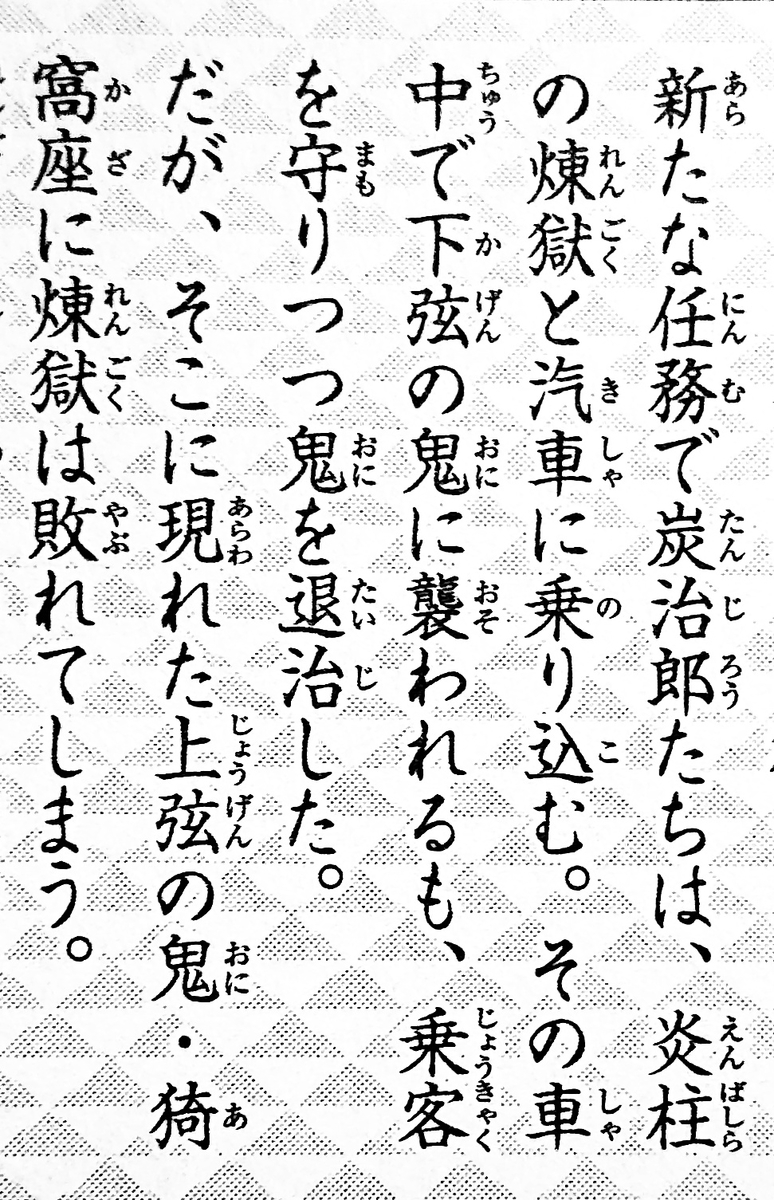 新たな任務で炭治郎たちは、炎柱
の煉獄と汽車に乗り込む。その車
中で下弦の鬼に襲われるも、乗客
を守りつつ鬼を退治した。
だが、そこに現れた上弦の鬼・猗
窩座に煉獄は敗れてしまう。